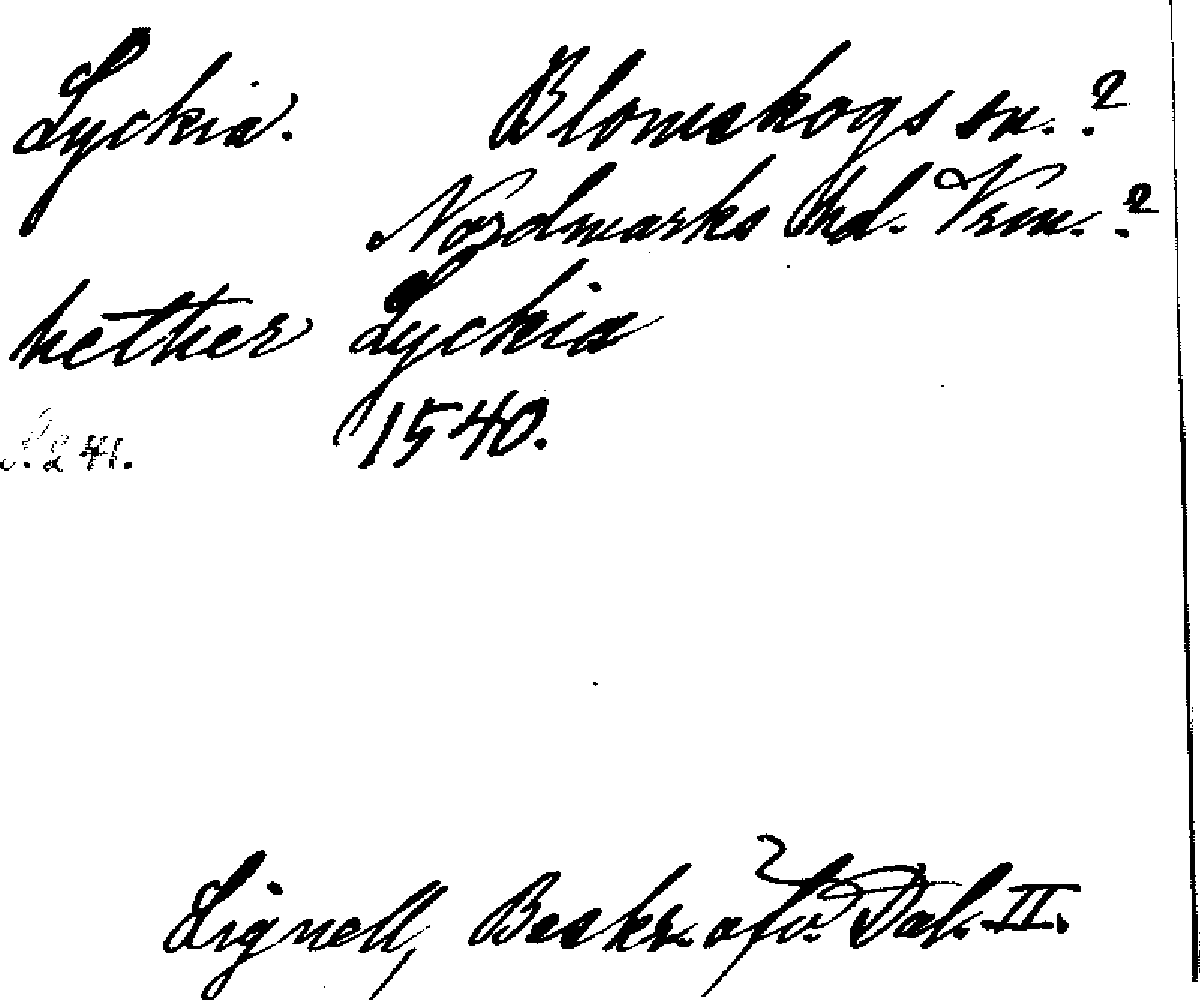 Lyckia. Blomskogs sn.?
Nordmarks hd. Vrm.?
hether Lyckia
S. 241. 1540.
Lignell, Beskr. öfv. Dal. II.